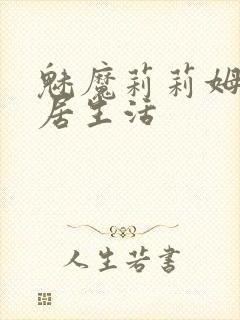 魅魔莉莉姆
居生活
人生若書